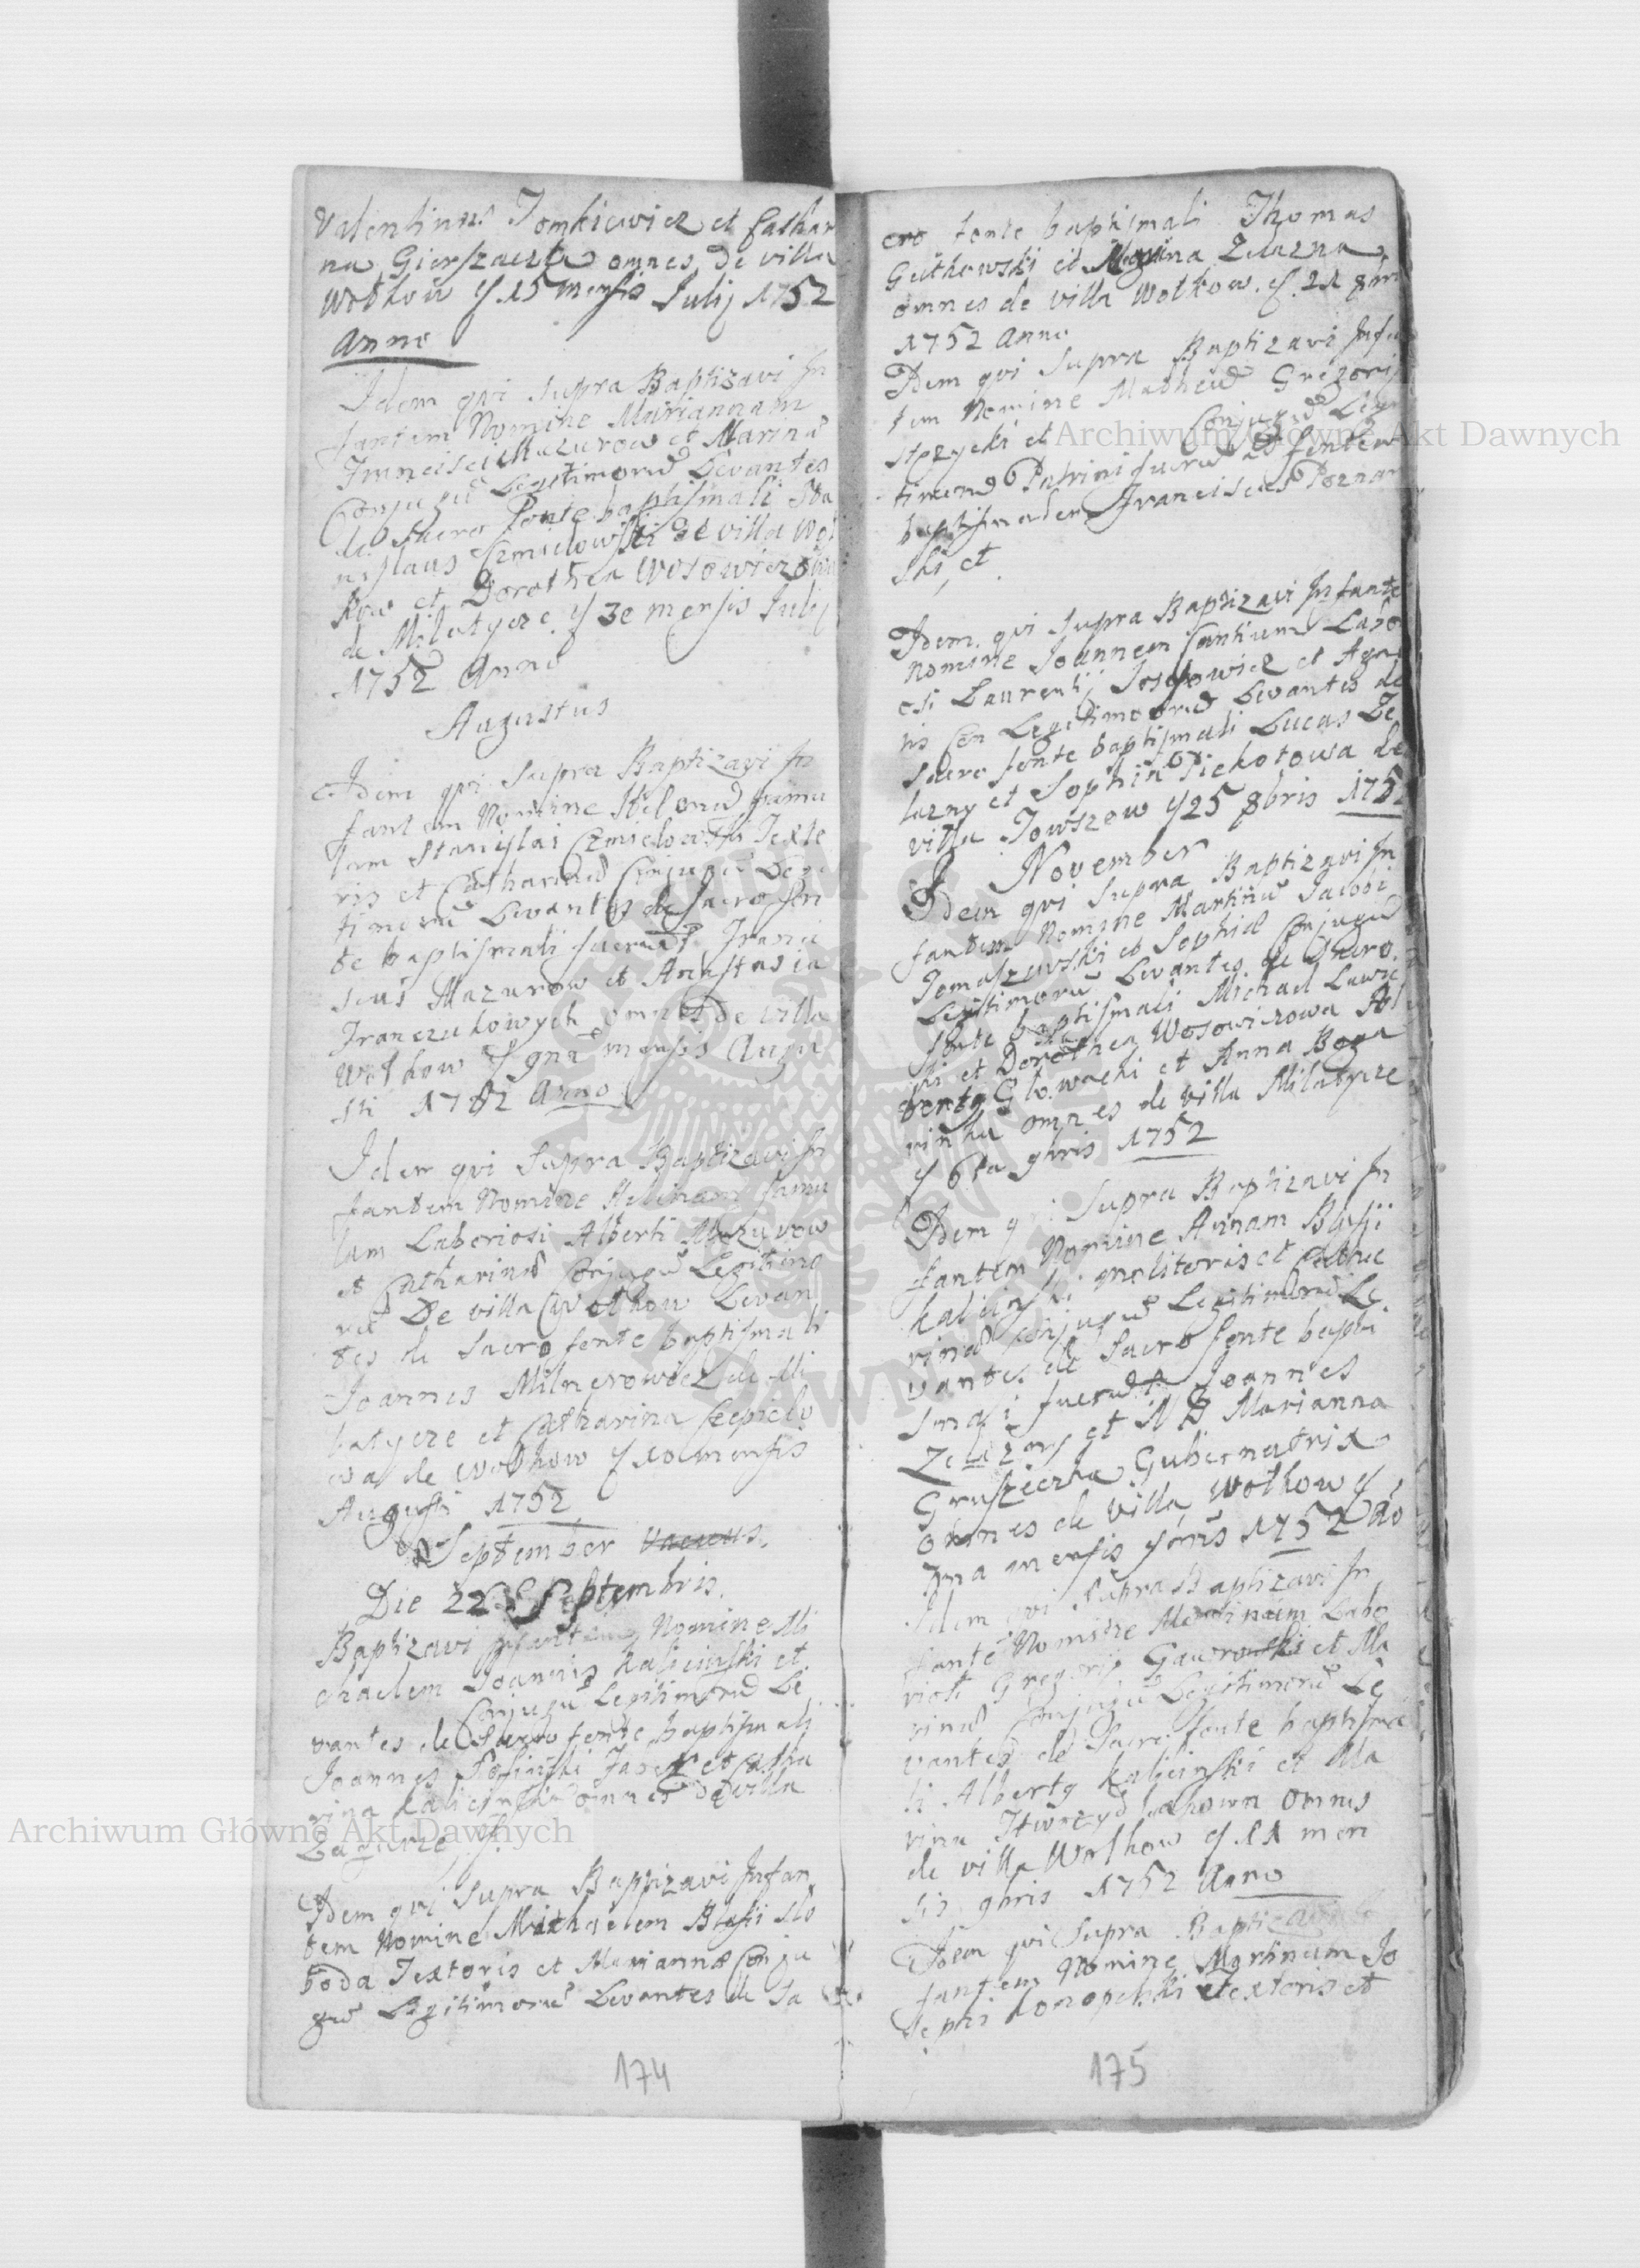 Valentinus Tomkiewicz et Cathari
na Gierszacka omnes de villa
Wołkow d 15 mensis Julij 1752
Anno
Idem qui supra Baptizavi In
fantem Nomine Mariannam
Francisci Mazurow et Marinæ
Conjugū Legitimorū Levantes
de Sacro Fonte baptismali Sta
nislaus Czmielowski de villa Woł
kow et Dorothea Wosowiczowa
de Milatycze d 30 mensis Julij
1752 Anno
Augustus
Idem qui supra Baptizavi In
fantem Nomine famu
lam Stanislai Czmielowski Texto
ris et Catharinæ Conjugū Legi
timorū Levantes de Sacro fon
te baptismali fuerunt Franci
scus Mazurow et Anastasia
Franczukowych omnes de villa
Wołkow d mensis Augu
sti 1752 Anno
Idem qui Supra Baptizavi In
fantem Nomine Helenam famu
lam Laboriosi Alberti Mazurow
et Catharinæ Conjugū Legitimo
rū De villa Wołkow Levan
tes de Sacro fonte baptismali
Joannes Milnerowicz de Mi
latycze et Catharina
wa de Wołkow d 10 mensis
Augusti 1752
September vacuus.
Die 22 Septembris.
Baptizavi Infantem Nomine Mi
chaelem Joannis Kaliciński et
Conjugū Legitimorū Le
vantes de Sacro fonte baptismali
Joannes et Catha
rina omnes de villa
Idem qui Supra Baptizavi Infan
tem Nomine Michaelem Blasii Slo
boda Textoris et Mariannæ Conju
gū Legitimorū Levantes de Sa
174
cro fonte baptismali Thomas
Gutkowski et Marina Zelazna
omnes de villa Wołkow d 21 8bris
1752 Anno
Idem qui Supra Baptizavi Infan
tem Nomine Matheū Gregorij
et Conjugū Legi
timorū Patrini fuerū ad fontem
baptismalem Franciscus Poznan
ski et
Idem qui Supra Baptizavi Infante
Nomine Joannem Cantium Labo
si Laurentij Josefowicz et Agne
tis Con Legitimorū Levantes de
Sacro fonte baptismali Lucas Że
lazny et Sophia Piekotowa de
villa Towszow d 25 8bris 1752
November
Idem qui Supra Baptizavi In
fantem Nomine Martinū Jacobi
Tomaszewski et Sophiæ Conjugū
Legitimorū Levantes de Sacro
fonte baptismali Michael Lawic
ki et Dorothea Wosowiczowa Al
bertg Głowacki et Anna
omnes de villa Milatycze
d 6ta 9bris 1752
Idem qui Supra Baptizavi In
fantem Nomine Annam Blasij
Kaliciński molitoris et Catha
rinæ Conjugū Legitimorū Le
vantes de Sacro fonte bapti
smali fuerunt Joannes
Zelazny et M D Marianna
Gruszecka Gubernatrix
omnes de villa Wołkow d
mensis 9bris 1752 Ao
Idem qui Supra Baptizavi In
fante Nomine Martinum Labo
riosi Gregorij Gawronski et Ma
rinæ Conjugū Legitimorū Le
vantes de Sacro fonte baptisma
li Albertg Kaliciński et Ma
rina omnes
de villa Wołkow d 11 men
sis 9bris 1752 Anno
Idem qui Supra Baptizavi In
fantem Nomine Martinum Jo
sephi Konopelski Textoris et
175
Archiwum Główne Akt Dawnych
Archiwum Główne Akt Dawnych